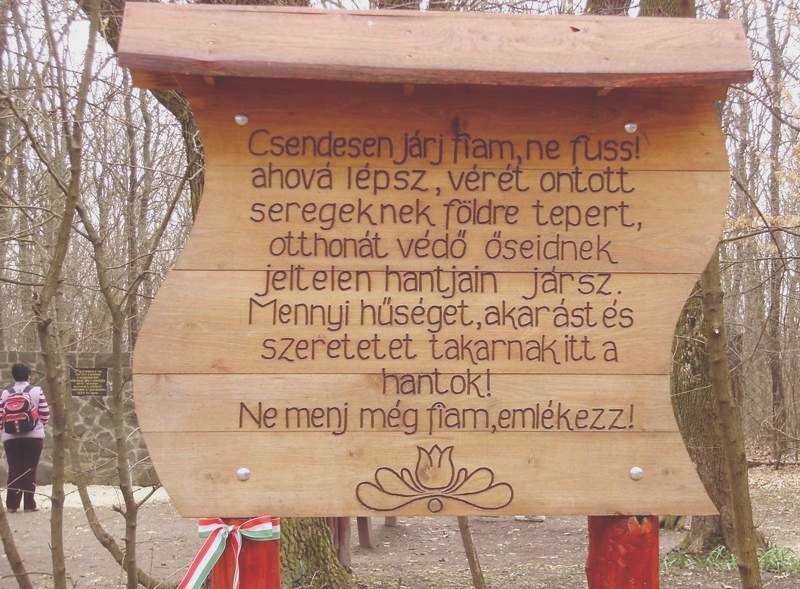 Csendesen járj fiam, ne fuss!
ahová lépsz, vérét ontott
seregeknek földre tepert,
otthonát védő őseidnek
jeltelen hantjain jársz.
Mennyi hűséget, akarást és
szeretetet takarnak itt a
hantok!
Ne menj még fiam, emlékezz!